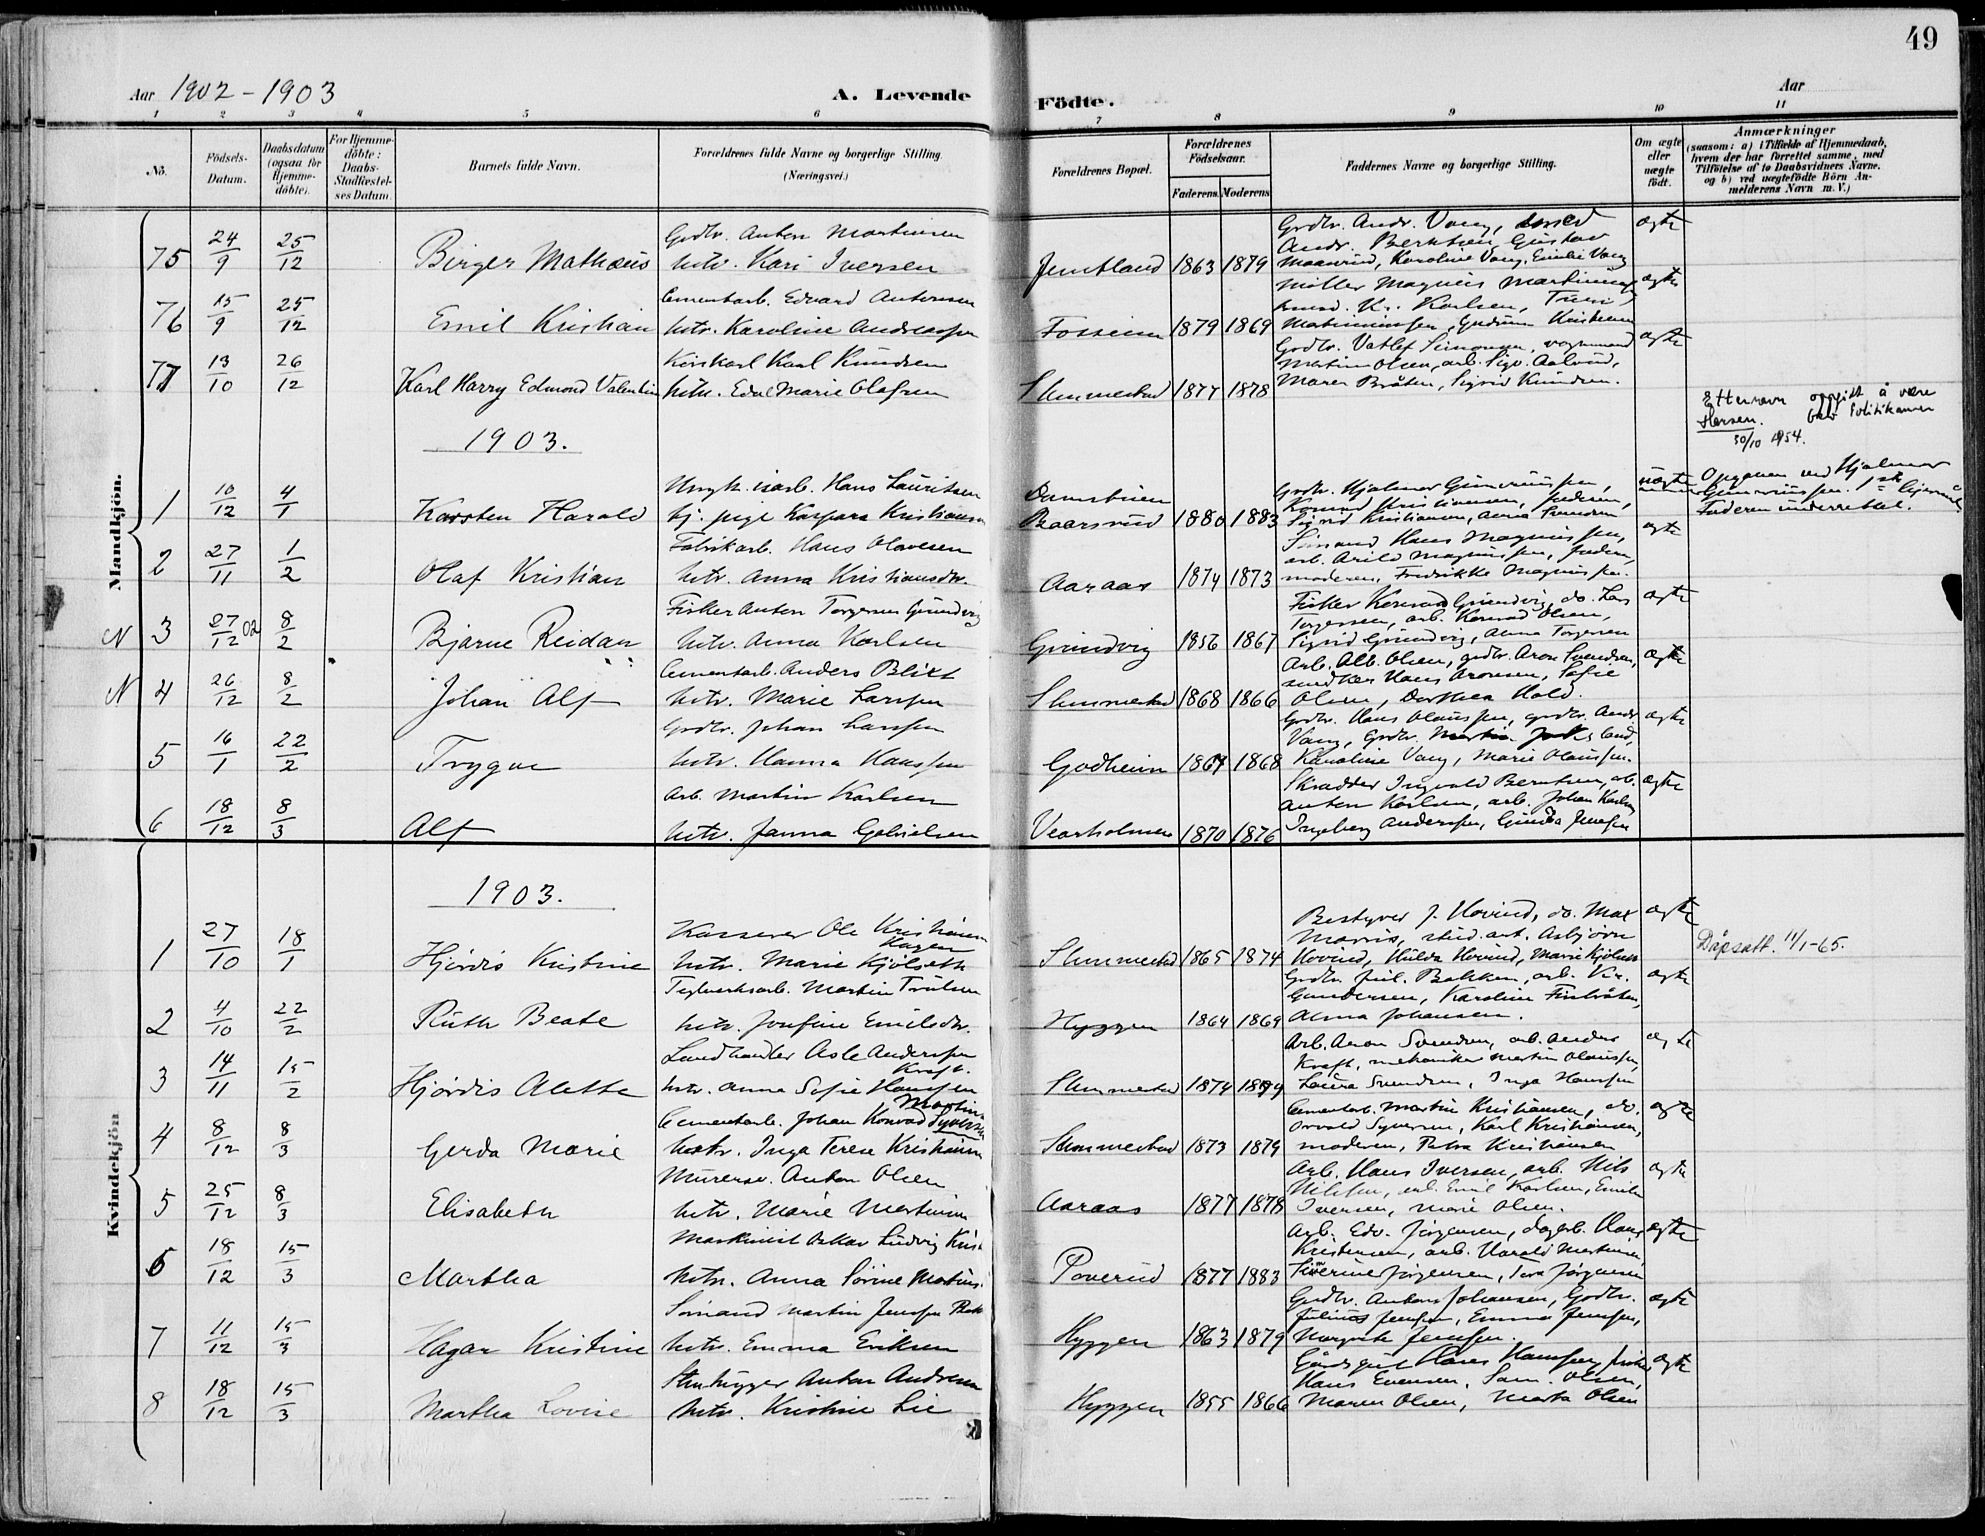 49
Aar 1902-1903
A. Levende Födte.
Aar
1 2 3 4 5 6 7 8 9 10 11
No. Födsels-Datum. Daabsdatum (ogsaa for Hjemmedöbte). For Hjemmedöbte: Daabs-Stadfæstelses Datum. Barnets fulde Navn. Forældrenes fulde Navne og borgerlige Stilling. (Næringsvei.) Forældrenes Bopæl. Forældrenes Födselsaar. Faderens. Moderens. Faddernes Navne og borgerlige Stilling. Om ægte eller uægte födt. Anmærkninger (saasom: a) i Tilfælde af Hjemmedaab, hvem der har forrettet samme, med Tilföielse af to Daabsvidners Navne. og b) ved uægtefödte Börn Anmelderens Navn m. V.)
Mandkjön.
75 24/9 25/12 Birger Mathæus Grdbr. Anton Martinsen htr. Kari Iversen Jemtland 1863 1879 Grdbr. Andr. Vang, Andr. Berntsen, Gustav Karoline Vang, Emilie Vang ægte
76 15/9 25/12 Emil Kristian Cementarb. Edvard Antonsen htr. Karoline Andreassen 1879 1869 Møller Magnus Kr. Karlsen, Gudrun ægte
77 13/10 26/12 Karl Harry Edmond Valentin Karl Knudsen htr. Marie Olafsen Slemmestad 1877 1878 Martin Olsen, arb. Sigv. Maren Bråten, Sigrid Knudsen. ægte
Etternavn oppgitt å være
Hersen.
30/10 1954.
1903.
1 10/12 4/1 Karsten Harald Ungk. isarb. Hans Lauritsen tj. pige Kaspara Kristiansen Baarsrud 1880 1883 Grdbr. Hjalmar Gunerussen, Konrad Kristiansen, faderen, Sigrid Kristiansen, Anna uægte Opgaven ved Hjalmar Gunerussen. Faderen underrettet.
2 27/11 1/2 Olaf Kristian Fabrikarb. Hans Olavesen htr. Anna Kristiansdtr. Aaraas 1874 1873 Sømand Hans Magnussen, arb. Arild Magnussen, faderen, moderen, Fredrikke Magnussen. ægte
N 3 27/12 02 8/2 Bjarne Reidar Fisker Anton Torgersen Grundvig htr. Anna Karlsen Grundvig 1856 1867 Fisker Konrad Grundvig, do. Lars Torgersen, arb. Konrad Olsen, Sigrid Grundvig, Anna Torgersen ægte
N 4 26/12 8/2 Johan Alf Cementarb. Anders Blixt htr. Marie Larssen Slemmestad 1868 1866 Arb. Alb. Olsen, grdbr. Aron Svendsen, snedker Hans Aronsen, Sofie Olsen, Dorthea Hold. ægte
5 16/1 22/2 Trygve Grdbr. Johan Larssen htr. Hanna Hanssen Godheim 1867 1868 Grdbr. Hans Olaussen, grdbr. Andr. Vang, Grdbr. Karoline Vang, Marie Olaussen. ægte
6 18/12 8/3 Alf Arb. Martin Karlsen htr. Janna Gabrielsen Vearholmen 1870 1876 Skrædder Ingvald Berntsen, arb. Anton Karlsen, arb. Johan Karlsen, Ingeborg Anderssen, Gunda Jenssen ægte
Kvindekjön
1903.
1 27/10 18/1 Hjördis Kristine Kasserer Ole Kristiansen Hagen htr. Marie Kjölseth Slemmestad 1865 1874 Bestyrer J. Hovind, do. Max Morris, stud. art. Asbjörn Hovind, Hilda Hovind, Marie Kjölseth ægte Dåpsatt. 11/1-65.
2 4/10 22/2 Ruth Beate Teglverksarb. Martin Trulsen htr. Josefine Emilsdtr. Hyggen 1864 1869 Grdbr. Jul. Bakken, arb. Kr. Gundersen, Karoline Alma Johansen. ægte
3 14/11 15/2 Hjördis Alette Landhandler Asle Anderssen Kraft. htr. Anna Sofie Hanssen Slemmestad 1874 Arb. Aron Svendsen, arb. Anders Kraft, mekaniker Martin Olaussen, Laura Svendsen, Inga Hanssen ægte
4 8/12 8/3 Gerda Marie Cementarb. Johan Konrad Martin Syversen htr. Inga Terese Kristiansen Slemmestad 1873 1879 Cementarb. Martin Kristiansen, do. Orvald Syversen, Karl Kristiansen, moderen, Petra Kristiansen ægte
5 25/12 8/3 Elisabeth Murersv. Anton Olsen htr. Marie Martinsen Aaraas 1877 1878 Arb. Hans Iversen, arb. Nils Nilssen, arb. Emil Karlsen, Emilie Iversen, Marie Olsen. ægte
6 18/12 15/3 Martha Maskinist Oskar Ludvig Krist. htr. Anna Sörine Martins. Poverud 1877 1883 Arb. Edv. Jörgensen, dagarb. Hans Kristensen, arb. Harald Martinsen, Severine Jörgensen, Tora Jörgensen ægte
7 11/12 15/3 Hagar Kristine Sömand Martin Jenssen htr. Emma Eriksen Hyggen 1863 1879 Grdbr. Anton Johansen, Grdbr. Julius Jenssen, Emma Jenssen, Margrete Jenssen. ægte
8 18/12 15/3 Martha Lovise Stenhugger Anton Andersen htr. Kristine Lie Hyggen 1855 1866 Gårdsgut Hans Hanssen, fisker Hans Evensen, Sam. Olsen, Maren Olsen, Marta Olsen ægte